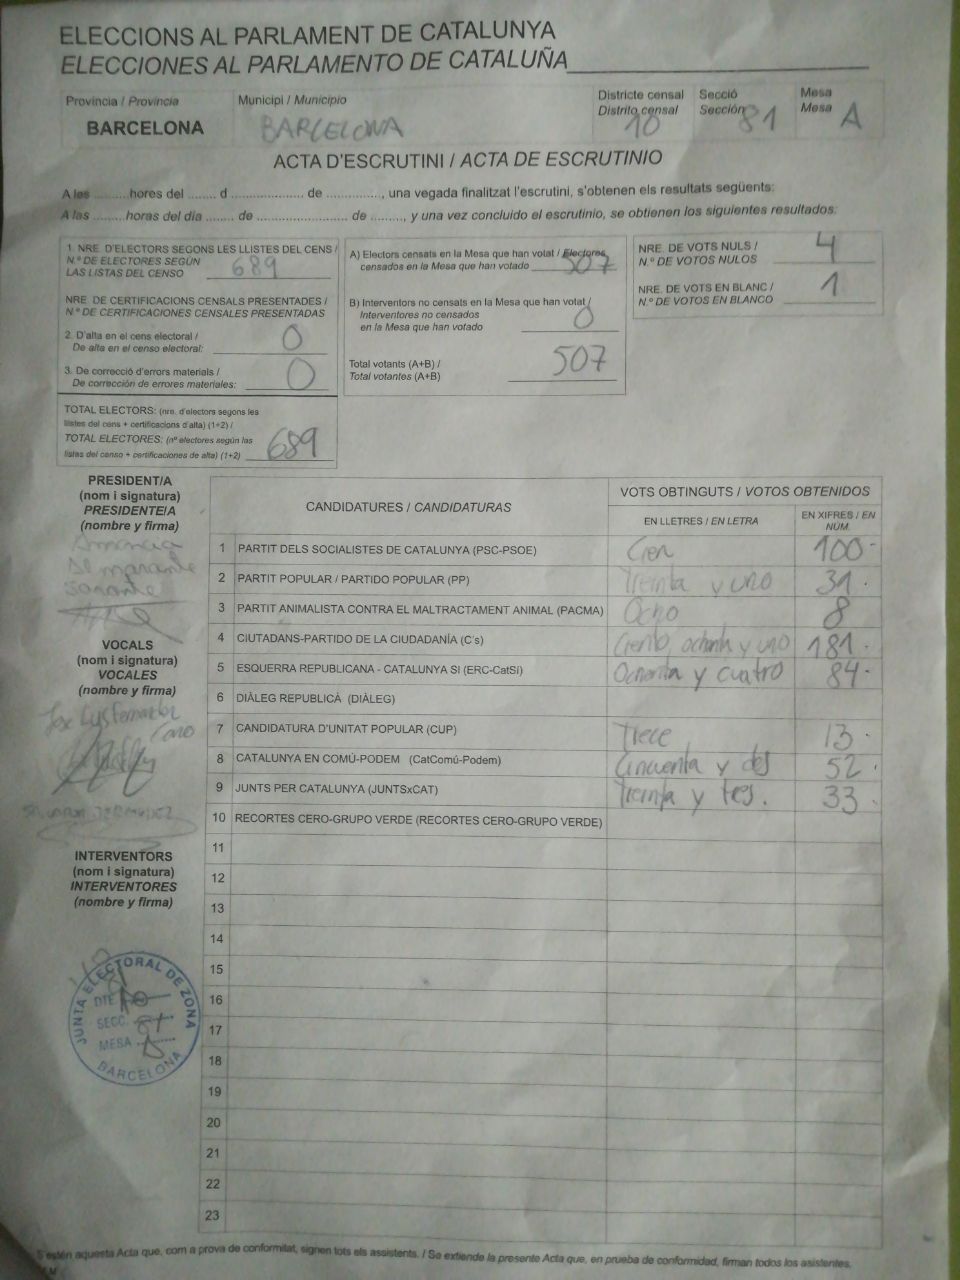 ELECCIONS AL PARLAMENT DE CATALUNYA
ELECCIONES AL PARLAMENTO DE CATALUÑA
Provincia / Provincia
BARCELONA
Municipi / Municipio
BARCELONA
Districte censal
Distrito censal
10
Secció
Sección
81
Mesa
Mesa
A
ACTA D'ESCRUTINI / ACTA DE ESCRUTINIO
A les .........hores del ........ d ..................... de ................, una vegada finalitzat l'escrutini, s'obtenen els resultats següents:
A las .........horas del día ........ de .......................... de ........., y una vez concluido el escrutinio, se obtienen los siguientes resultados:
1. NRE. D'ELECTORS SEGONS LES LLISTES DEL CENS /
N.º DE ELECTORES SEGÚN
LAS LISTAS DEL CENSO 689
NRE. DE CERTIFICACIONS CENSALS PRESENTADES /
N.º DE CERTIFICACIONES CENSALES PRESENTADAS
2. D'alta en el cens electoral /
De alta en el censo electoral: 0
3. De correcció d'errors materials /
De corrección de errores materiales: 0
TOTAL ELECTORS: (nre. d'electors segons les
llistes del cens + certificacions d'alta) (1+2) /
TOTAL ELECTORES: (nº electores según las
listas del censo + certificaciones de alta) (1+2) 689
A) Electors censats en la Mesa que han votat / Electores
censados en la Mesa que han votado 507
B) Interventors no censats en la Mesa que han votat /
Interventores no censados
en la Mesa que han votado 0
Total votants (A+B) /
Total votantes (A+B) 507
NRE. DE VOTS NULS /
N.º DE VOTOS NULOS 4
NRE. DE VOTS EN BLANC /
N.º DE VOTOS EN BLANCO 1
PRESIDENT/A
(nom i signatura)
PRESIDENTE/A
(nombre y firma)
VOCALS
(nom i signatura)
VOCALES
(nombre y firma)
INTERVENTORS
(nom i signatura)
INTERVENTORES
(nombre y firma)
JUNTA ELECTORAL DE ZONA
DTE. 10
SECC. 81
MESA
BARCELONA
CANDIDATURES / CANDIDATURAS
VOTS OBTINGUTS / VOTOS OBTENIDOS
EN LLETRES / EN LETRA
EN XIFRES / EN NÚM.
1 PARTIT DELS SOCIALISTES DE CATALUNYA (PSC-PSOE) Cien 100-
2 PARTIT POPULAR / PARTIDO POPULAR (PP) Treinta y uno 31.
3 PARTIT ANIMALISTA CONTRA EL MALTRACTAMENT ANIMAL (PACMA) Ocho 8
4 CIUTADANS-PARTIDO DE LA CIUDADANÍA (C's) Ciento ochenta y uno 181.
5 ESQUERRA REPUBLICANA - CATALUNYA SÍ (ERC-CatSí) Ochenta y cuatro 84.
6 DIÀLEG REPUBLICÀ (DIÀLEG)
7 CANDIDATURA D'UNITAT POPULAR (CUP) Trece 13.
8 CATALUNYA EN COMÚ-PODEM (CatComú-Podem) Cincuenta y dos 52.
9 JUNTS PER CATALUNYA (JUNTSxCAT) Treinta y tres. 33.
10 RECORTES CERO-GRUPO VERDE (RECORTES CERO-GRUPO VERDE)
11
12
13
14
15
16
17
18
19
20
21
22
23
S'estén aquesta Acta que, com a prova de conformitat, signen tots els assistents. / Se extiende la presente Acta que, en prueba de conformidad, firman todos los asistentes.